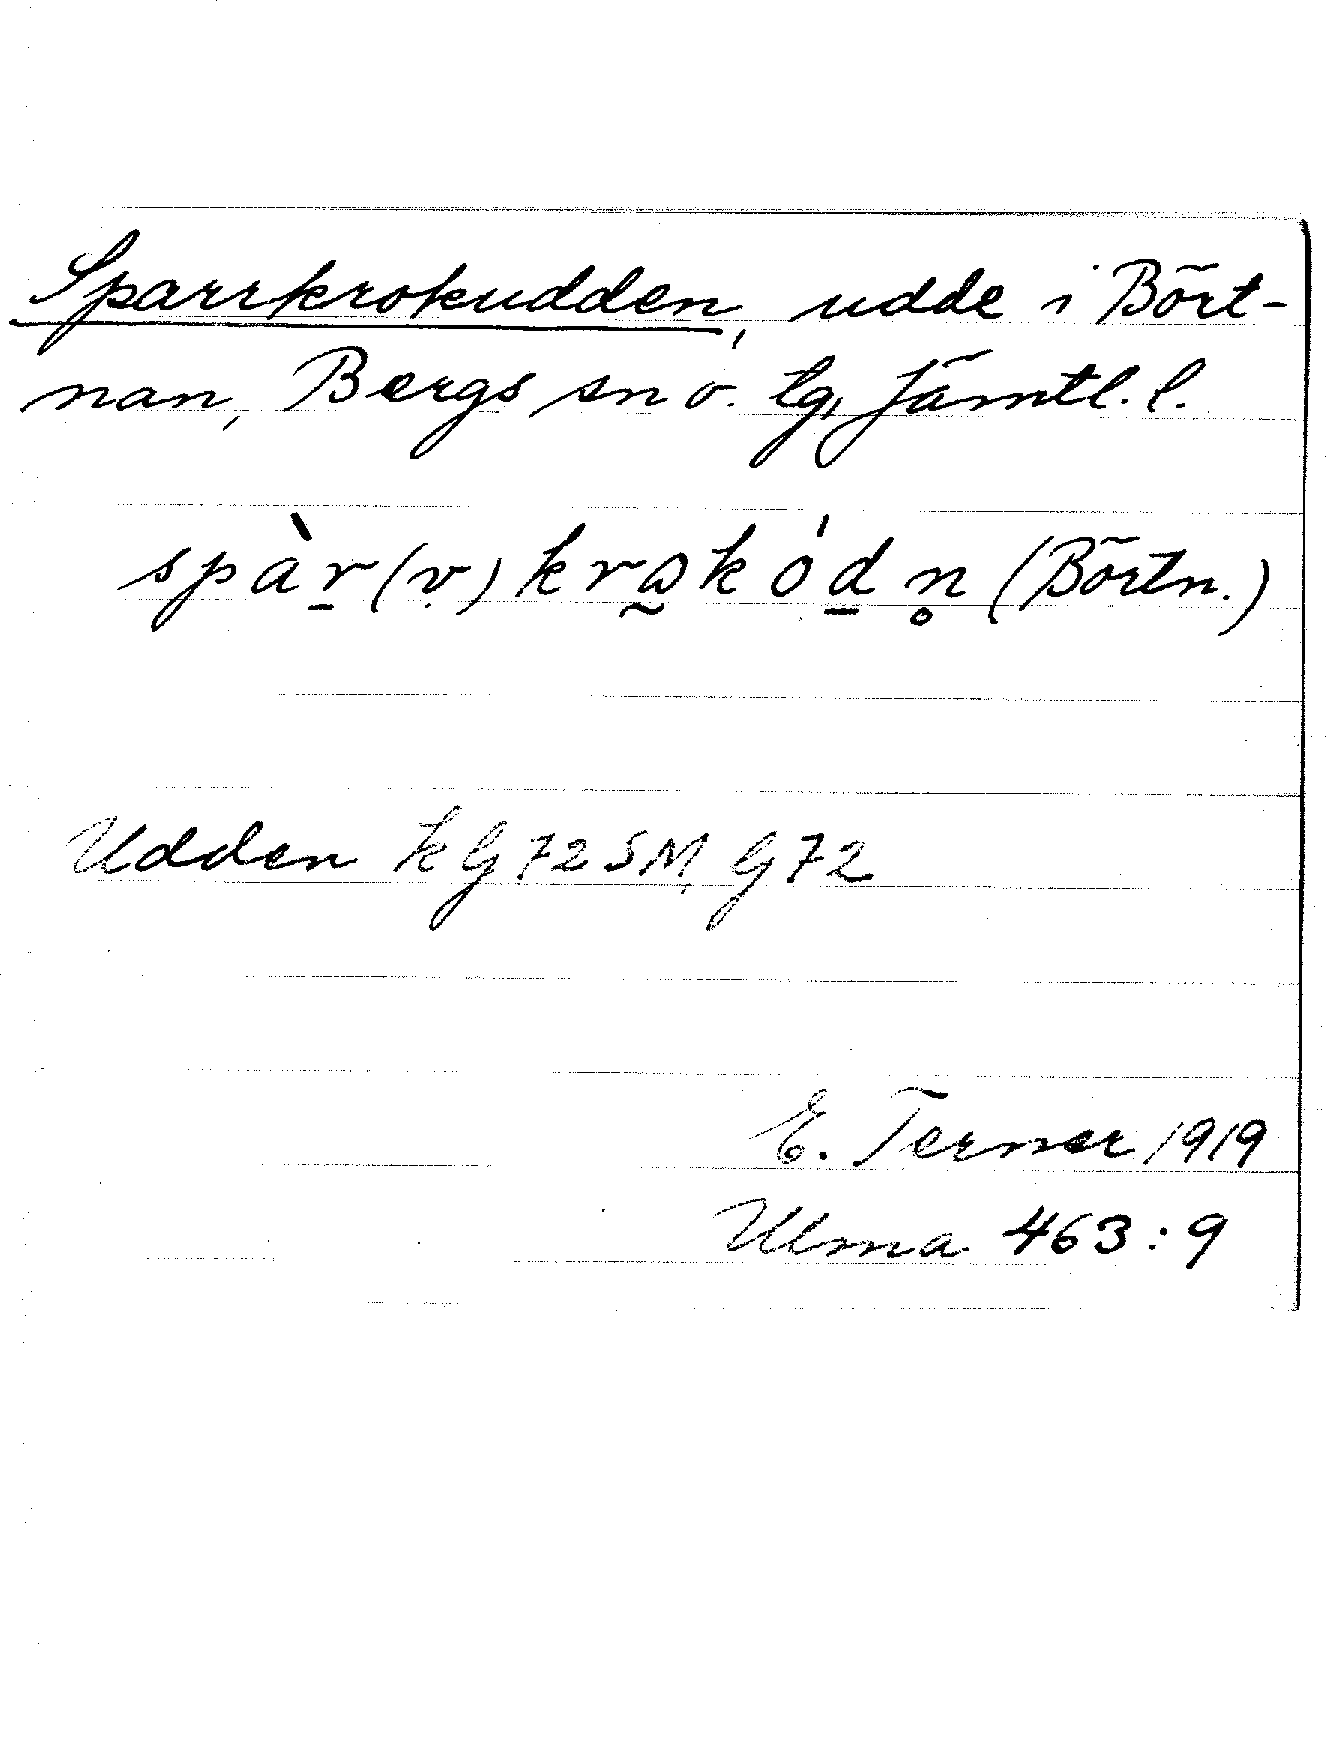 Sparrkrokudden, udde i Bört-
nan, Bergs sn o. tg, Jämtl. l.
spàr̲(v)krɷ̰kód̲n̥ (Börtn.)
Udden kG72SM, G72
E. Terner 1919
Ulma 463:9